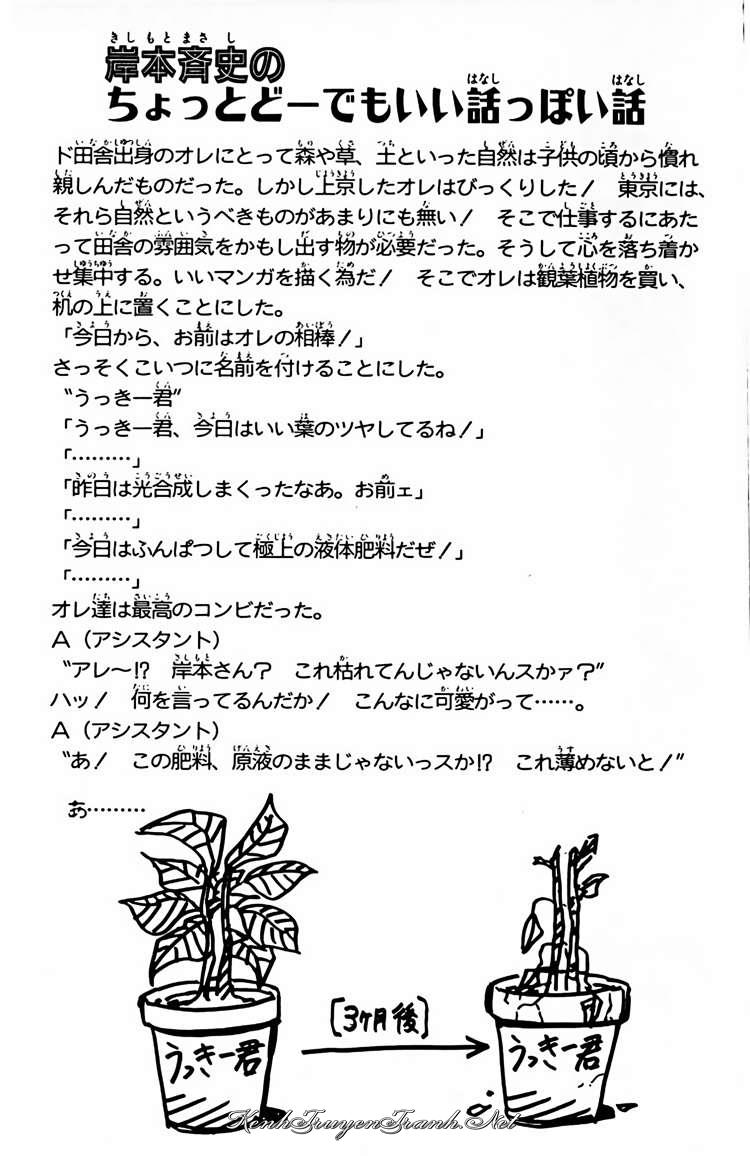 岸本斉史の
ちょっとどーでもいい話っぽい話
ド田舎出身のオレにとって森や草、土といった自然は子供の頃から慣れ
親しんだものだった。しかし上京したオレはびっくりした！　東京には、
それら自然というべきものがあまりにも無い！　そこで仕事するにあた
って田舎の雰囲気をかもし出す物が必要だった。そうして心を落ち着か
せ集中する。いいマンガを描く為だ！　そこでオレは観葉植物を買い、
机の上に置くことにした。
「今日から、お前はオレの相棒！」
さっそくこいつに名前を付けることにした。
〝うっきー君〟
「うっきー君、今日はいい葉のツヤしてるね！」
「………」
「昨日は光合成しまくったなあ。お前ェ」
「………」
「今日はふんぱつして極上の液体肥料だぜ！」
「………」
オレ達は最高のコンビだった。
A（アシスタント）
〝アレ〜!?　岸本さん？　これ枯れてんじゃないんスかァ？〟
ハッ！　何を言ってるんだか！　こんなに可愛がって……。
A（アシスタント）
〝あ！　この肥料、原液のままじゃないっスか!?　これ薄めないと！〟
あ………
[3ヶ月後]
うっきー君
うっきー君
KenhTruyenTranh.Net